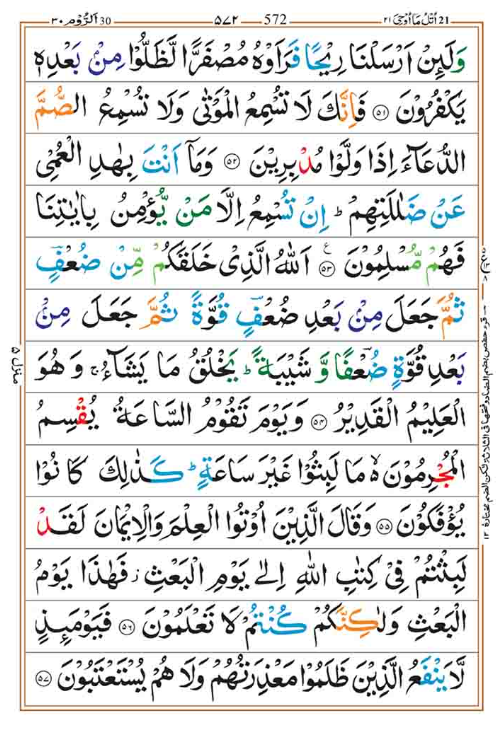 اُتْلُ مَآ اُوْحِیَ ٢١ 21 ٥٧٢ 572 اَلرُّوْم ٣٠ 30
وَلَئِنْ اَرْسَلْنَا رِیْحًا فَرَاَوْهُ مُصْفَرًّا لَّظَلُّوْا مِنْۢ بَعْدِهٖ
یَكْفُرُوْنَ ۝٥١ فَاِنَّكَ لَا تُسْمِعُ الْمَوْتٰی وَلَا تُسْمِعُ الصُّمَّ
الدُّعَآءَ اِذَا وَلَّوْا مُدْبِرِیْنَ ۝٥٢ وَمَاۤ اَنْتَ بِهٰدِ الْعُمْیِ
عَنْ ضَلٰلَتِهِمْ ؕ اِنْ تُسْمِعُ اِلَّا مَنْ یُّؤْمِنُ بِاٰیٰتِنَا
فَهُمْ مُّسْلِمُوْنَ ۝٥٣ ع اَللّٰهُ الَّذِیْ خَلَقَكُمْ مِّنْ ضُعْفٍ
ثُمَّ جَعَلَ مِنْۢ بَعْدِ ضُعْفٍ قُوَّةً ثُمَّ جَعَلَ مِنْۢ
بَعْدِ قُوَّةٍ ضُعْفًا وَّ شَیْبَةً ؕ یَخْلُقُ مَا یَشَآءُ ۚ وَ هُوَ
الْعَلِیْمُ الْقَدِیْرُ ۝٥٤ وَیَوْمَ تَقُوْمُ السَّاعَةُ یُقْسِمُ
الْمُجْرِمُوْنَ ۙ۬ مَا لَبِثُوْا غَیْرَ سَاعَةٍ ؕ كَذٰلِكَ كَانُوْا
یُؤْفَكُوْنَ ۝٥٥ وَقَالَ الَّذِیْنَ اُوْتُوا الْعِلْمَ وَالْاِیْمَانَ لَقَدْ
لَبِثْتُمْ فِیْ كِتٰبِ اللّٰهِ اِلٰی یَوْمِ الْبَعْثِ ؗ فَهٰذَا یَوْمُ
الْبَعْثِ وَلٰكِنَّكُمْ كُنْتُمْ لَا تَعْلَمُوْنَ ۝٥٦ فَیَوْمَئِذٍ
لَّا یَنْفَعُ الَّذِیْنَ ظَلَمُوْا مَعْذِرَتُهُمْ وَلَا هُمْ یُسْتَعْتَبُوْنَ ۝٥٧
منزل ٥